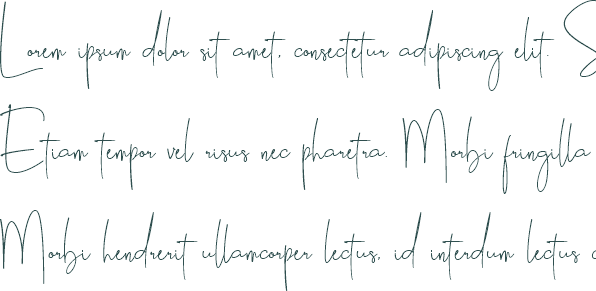 Lorem ipsum dolor sit amet, consectetur adipiscing elit. S
Etiam tempor vel risus nec pharetra. Morbi fringilla
Morbi hendrerit ullamcorper lectus, id interdum lectus